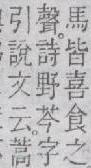 馬皆喜食之
聲。詩野芩字
引說文云。蒿